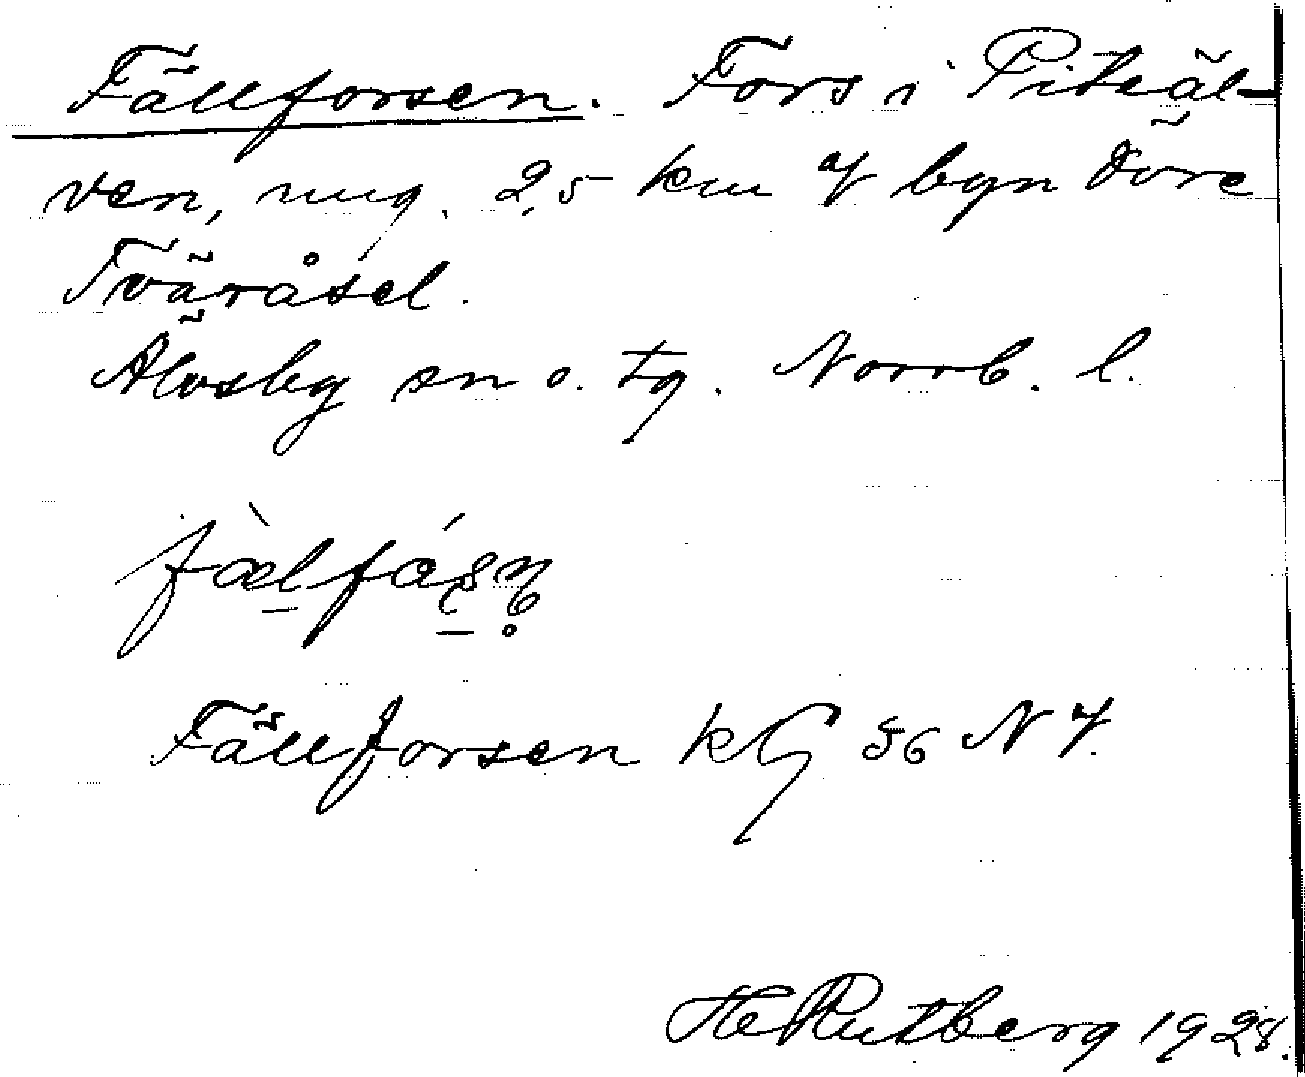 Fällforsen. Fors i Piteäl-
ven, ung. 2,5 km av byn Övre
Tväråsel.
Älvsby sn o. tg. Norrb. l.
fæ̀lfásn̥
Fällforsen kG 56 NV.
HRutberg 1928.